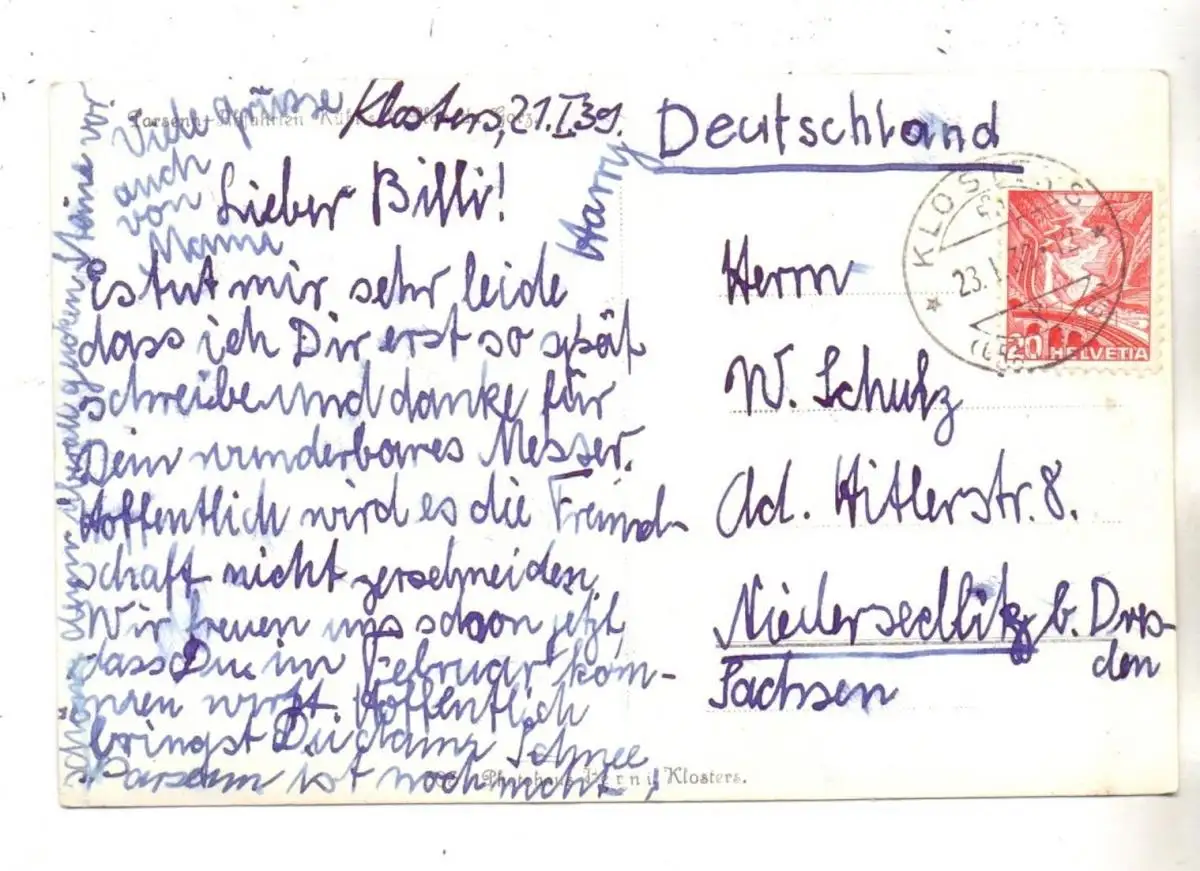 Klosters, 21.I.39.
Lieber Billi!
Es tut mir sehr leide
dass ich Dir erst so spät
schreibe und danke für
Dein wunderbares Messer.
Hoffentlich wird es die Freund-
schaft nicht zerschneiden.
Wir freuen uns schon jetzt,
dass Du im Februar kom-
men wirst. Hoffentlich
bringst Du dann Schnee,
Parsenn ist noch nicht
schön, denn überall gucken Steine vor
Harry
Viele Grüsse
auch
von
Mama
Deutschland
Herrn
W. Schulz
Ad. Hitlerstr. 8.
Niedersedlitz b. Dres-
den
Sachsen
KLOSTERS
23.I.
20 HELVETIA
Parsenn-Abfahrten
Photohaus Berni Klosters.